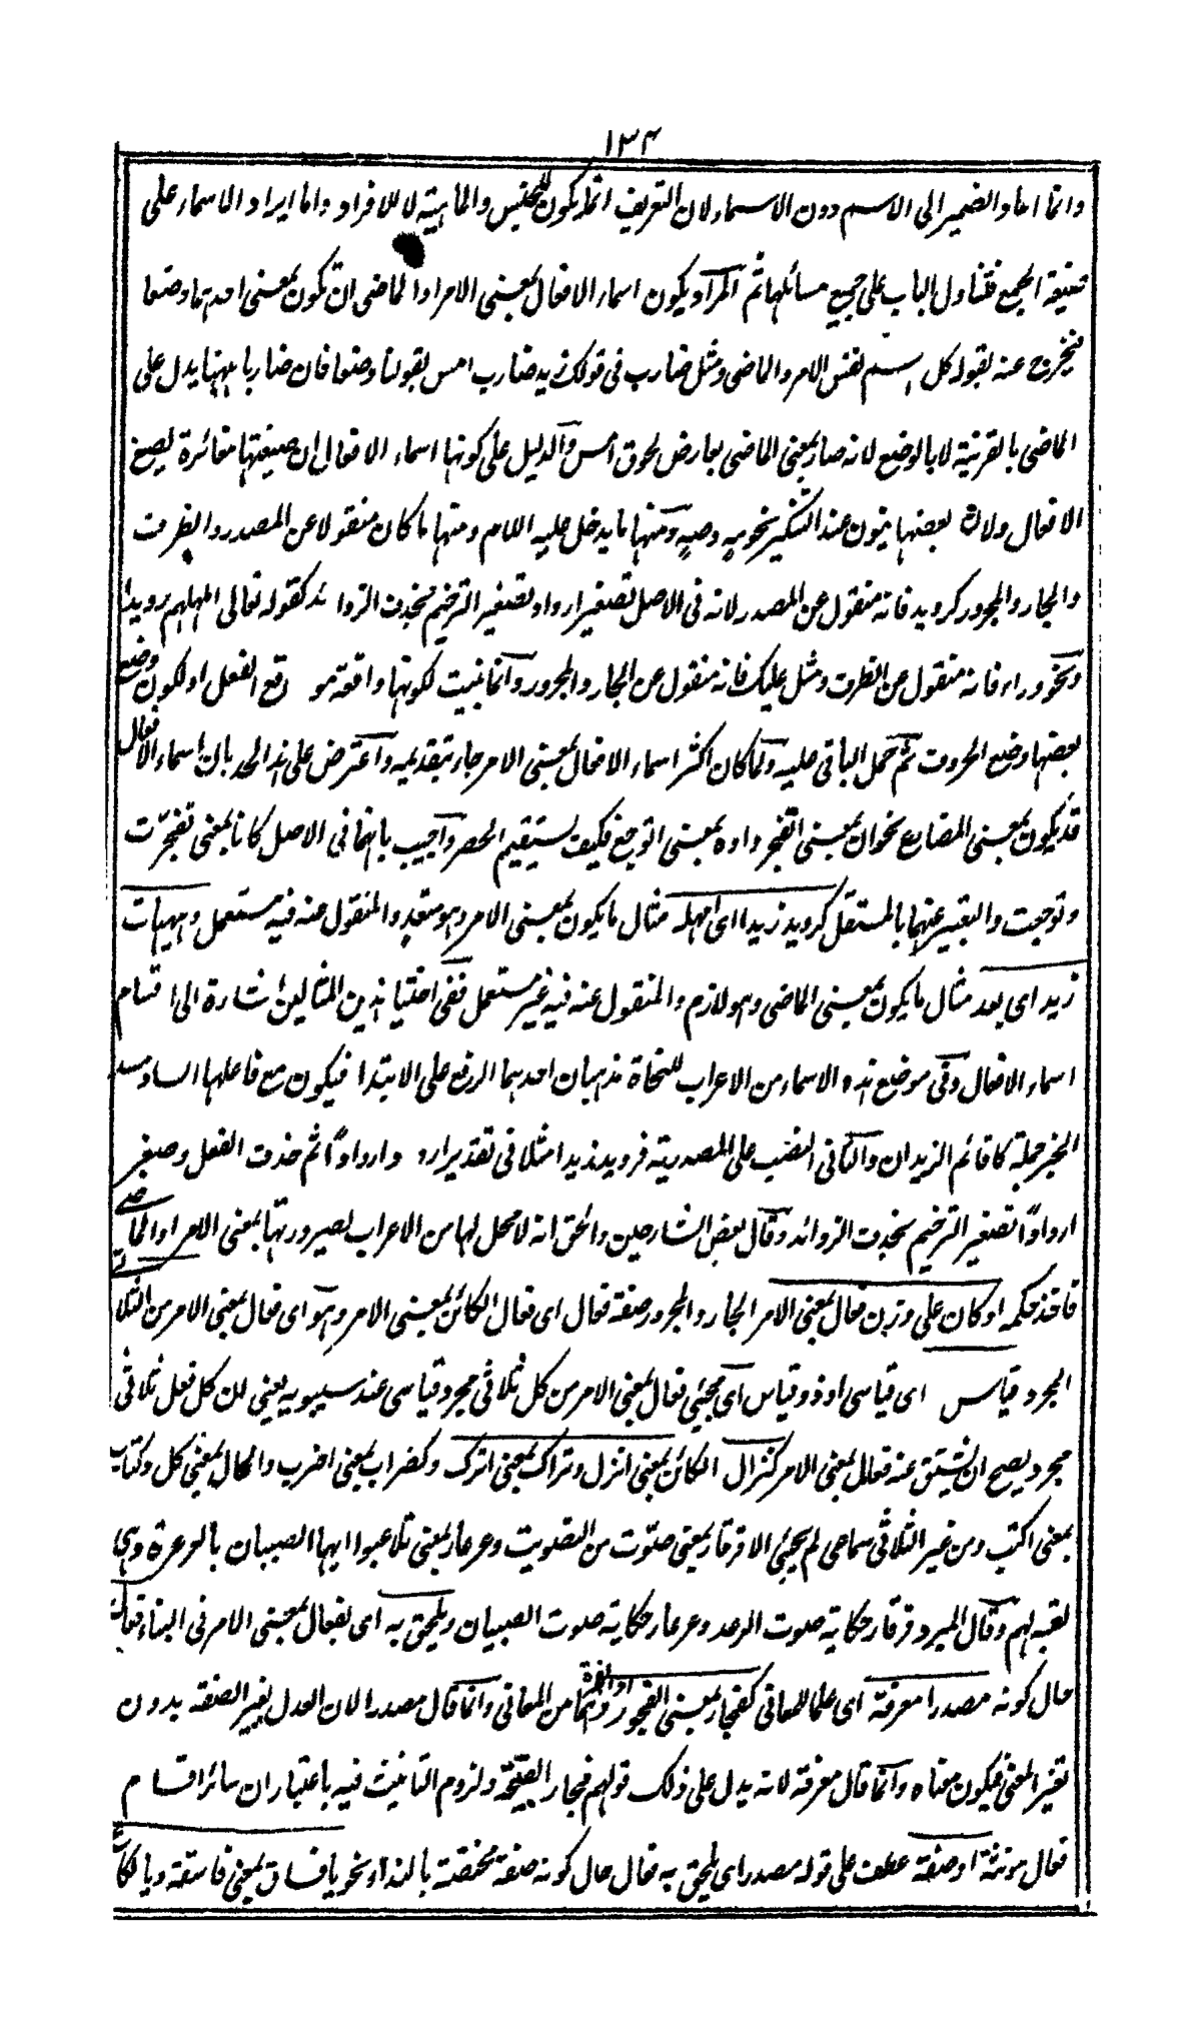 ١٣٤
وانما اعاد الضمير الى الاسم دون الاسماء لان التعريف انما يكون للجنس والماهية لا للافراد واما ايراد الاسماء على
صيغة الجمع فلتناول الباب على جميع مسائلها ثم المراد بكون اسماء الافعال بمعنى الامر او الماضى ان تكون بمعنى احدهما وضعا
فيخرج عنه بقوله كل اسم نفس الامر والماضى ومثل ضارب فى قولك زيد ضارب امس بقولنا وضعا فان ضاربا ههنا يدل على
الماضى بالقرينة لا بالوضع لانه صار بمعنى الماضى بعارض لحوق امس والدليل على كونها اسماء الافعال ان صيغتها مغائرة لصيغ
الافعال ولان بعضها ينون عند التنكير نحو مهٍ وصهٍ ومنها ما يدخل عليه اللام ومنها ما كان منقولا عن المصدر والظرف
والجار والمجرور كرويد فانه منقول عن المصدر لانه فى الاصل تصغير ارواد تصغير الترخيم بحذف الزوائد كقوله تعالى امهلهم رويدا
ونحو وراء فانه منقول عن الظرف ومثل عليك فانه منقول عن الجار والمجرور وانما بنيت لكونها واقعة موقع الفعل او لكون وضع
بعضها وضع الحروف ثم حمل الباقى عليه ولما كان اكثر اسماء الافعال بمعنى الامر جاء بتقديمه واعترض على هذا الحد بان اسماء الافعال
قد يكون بمعنى المضارع نحو اف بمعنى اتضجر واوه بمعنى اتوجع فكيف يستقيم الحصر واجيب بانهما فى الاصل كانا بمعنى تضجرت
وتوجعت والتعبير عنهما بالمستقبل كرويد زيدا اى امهله مثال ما يكون بمعنى الامر وهو متعد والمنقول عنه فيه مستعمل وهيهات
زيد اى بعد مثال ما يكون بمعنى الماضى وهو لازم والمنقول عنه فيه غير مستعمل ففى اختيار هذين المثالين اشارة الى اقسام
اسماء الافعال وفى موضع هذه الاسماء من الاعراب للنحاة مذهبان احدهما الرفع على الابتدا فيكون مع فاعلها الساد مسد
الخبر جملة كاقائم الزيدان والثانى النصب على المصدرية فرويد زيدا مثلا فى تقدير ارود اروادًا ثم حذف الفعل وصغر
اروادًا تصغير الترخيم بحذف الزوائد وقال بعض الشارحين والحق انه لا محل لها من الاعراب لصيرورتها بمعنى الامر او الماضى
فاخذ حكمه او كان على وزن فعال بمعنى الامر الجار والمجرور صفة فعال اى فعال الكائن بمعنى الامر وهو اى فعال بمعنى الامر من الثلاثى
المجرد قياس اى قياسى او ذو قياس اى مجئى فعال بمعنى الامر من كل ثلاثى مجرد قياسى عند سيبويه يعنى ان كل فعل ثلاثى
مجرد يصح ان يشتق عنه فعال بمعنى الامر كنزال الكائن بمعنى انزل وتراك بمعنى اترك وكضراب بمعنى اضرب واكال بمعنى كل وكتاب
بمعنى اكتب ومن غير الثلاثى سماعى لم يجئ الا قرقار بمعنى صوّت من التصويت وعرعار بمعنى تلاعبوا ايها الصبيان بالعرعرة وهى
لعبة لهم وقال المبرد قرقار حكاية صوت الرعد وعرعار حكاية صوت الصبيان ويلحق به اى بفعال بمعنى الامر فى البناء فعال
حال كونه مصدرا معرفة اى علما للمعانى كفجار بمعنى الفجور او الفجرة وهما من المعانى وانما قال مصدرا لان العدل يغير الصفة بدون
تغير المعنى فيكون معناه وانما قال معرفة لانه يدل على ذلك قولهم فجار القبيحة ولزوم التانيث فيه باعتبار ان سائر اقسام
فعال مونثة او صفة عطف على قوله مصدرا اى يلحق به فعال حال كونه صفة مختصة بالنداء نحو يا فساق بمعنى فاسقة ويا لكاع